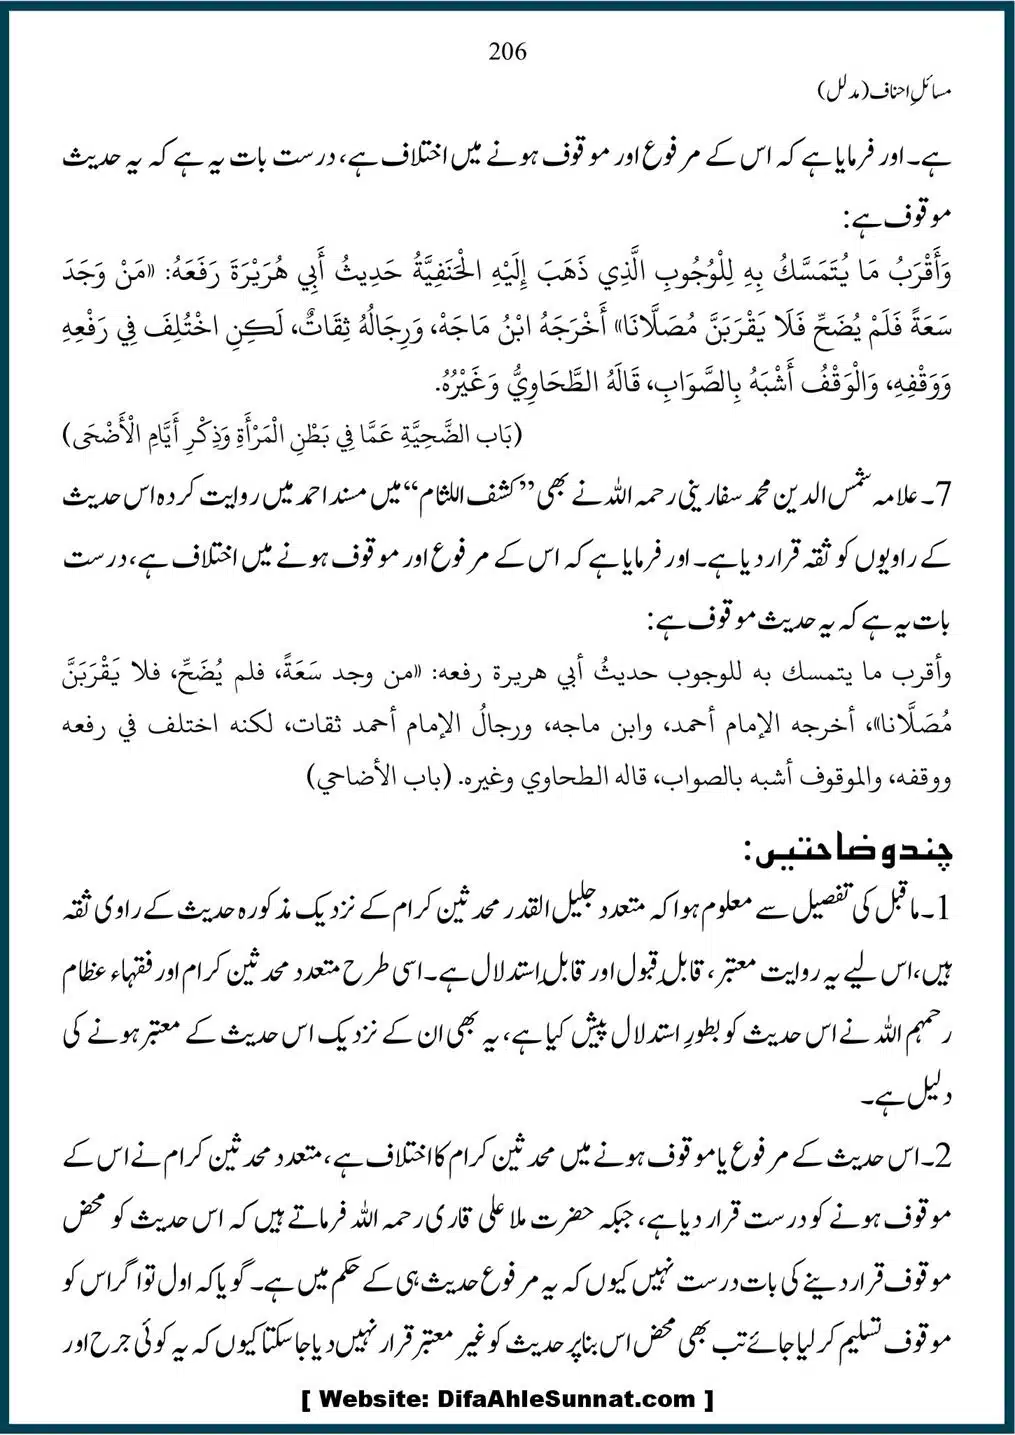 206
مسائلِ احناف (مدلل)
ہے۔ اور فرمایا ہے کہ اس کے مرفوع اور موقوف ہونے میں اختلاف ہے، درست بات یہ ہے کہ یہ حدیث
موقوف ہے:
وَأَقْرَبُ مَا يُتَمَسَّكُ بِهِ لِلْوُجُوبِ الَّذِي ذَهَبَ إِلَيْهِ الْحَنَفِيَّةُ حَدِيثُ أَبِي هُرَيْرَةَ رَفَعَهُ: «مَنْ وَجَدَ
سَعَةً فَلَمْ يُضَحِّ فَلَا يَقْرَبَنَّ مُصَلَّانَا» أَخْرَجَهُ ابْنُ مَاجَهْ، وَرِجَالُهُ ثِقَاتٌ، لَكِنِ اخْتُلِفَ فِي رَفْعِهِ
وَوَقْفِهِ، وَالْوَقْفُ أَشْبَهُ بِالصَّوَابِ، قَالَهُ الطَّحَاوِيُّ وَغَيْرُهُ.
(بَاب الضَّحِيَّةِ عَمَّا فِي بَطْنِ الْمَرْأَةِ وَذِكْرِ أَيَّامِ الْأَضْحَى)
7۔ علامہ شمس الدین محمد سفارینی رحمہ اللہ نے بھی ’’کشف اللثام‘‘ میں مسند احمد میں روایت کردہ اس حدیث
کے راویوں کو ثقہ قرار دیا ہے۔ اور فرمایا ہے کہ اس کے مرفوع اور موقوف ہونے میں اختلاف ہے، درست
بات یہ ہے کہ یہ حدیث موقوف ہے:
وأقرب ما يتمسك به للوجوب حديثُ أبي هريرة رفعه: «من وجد سَعَةً، فلم يُضَحِّ، فلا يَقْرَبَنَّ
مُصَلَّانا»، أخرجه الإمام أحمد، وابن ماجه، ورجالُ الإمام أحمد ثقات، لكنه اختلف في رفعه
ووقفه، والموقوف أشبه بالصواب، قاله الطحاوي وغيره. (باب الأضاحي)
چند وضاحتیں:
1۔ ماقبل کی تفصیل سے معلوم ہوا کہ متعدد جلیل القدر محدثین کرام کے نزدیک مذکورہ حدیث کے راوی ثقہ
ہیں، اس لیے یہ روایت معتبر، قابلِ قبول اور قابلِ استدلال ہے۔ اسی طرح متعدد محدثین کرام اور فقہاء عظام
رحمہم اللہ نے اس حدیث کو بطورِ استدلال پیش کیا ہے، یہ بھی ان کے نزدیک اس حدیث کے معتبر ہونے کی
دلیل ہے۔
2۔ اس حدیث کے مرفوع یا موقوف ہونے میں محدثین کرام کا اختلاف ہے، متعدد محدثین کرام نے اس کے
موقوف ہونے کو درست قرار دیا ہے، جبکہ حضرت ملا علی قاری رحمہ اللہ فرماتے ہیں کہ اس حدیث کو محض
موقوف قرار دینے کی بات درست نہیں کیوں کہ یہ مرفوع حدیث ہی کے حکم میں ہے۔ گویا کہ اول تو اگر اس کو
موقوف تسلیم کر لیا جائے تب بھی محض اس بنا پر حدیث کو غیر معتبر قرار نہیں دیا جاسکتا کیوں کہ یہ کوئی جرح اور
[ Website: DifaAhleSunnat.com ]